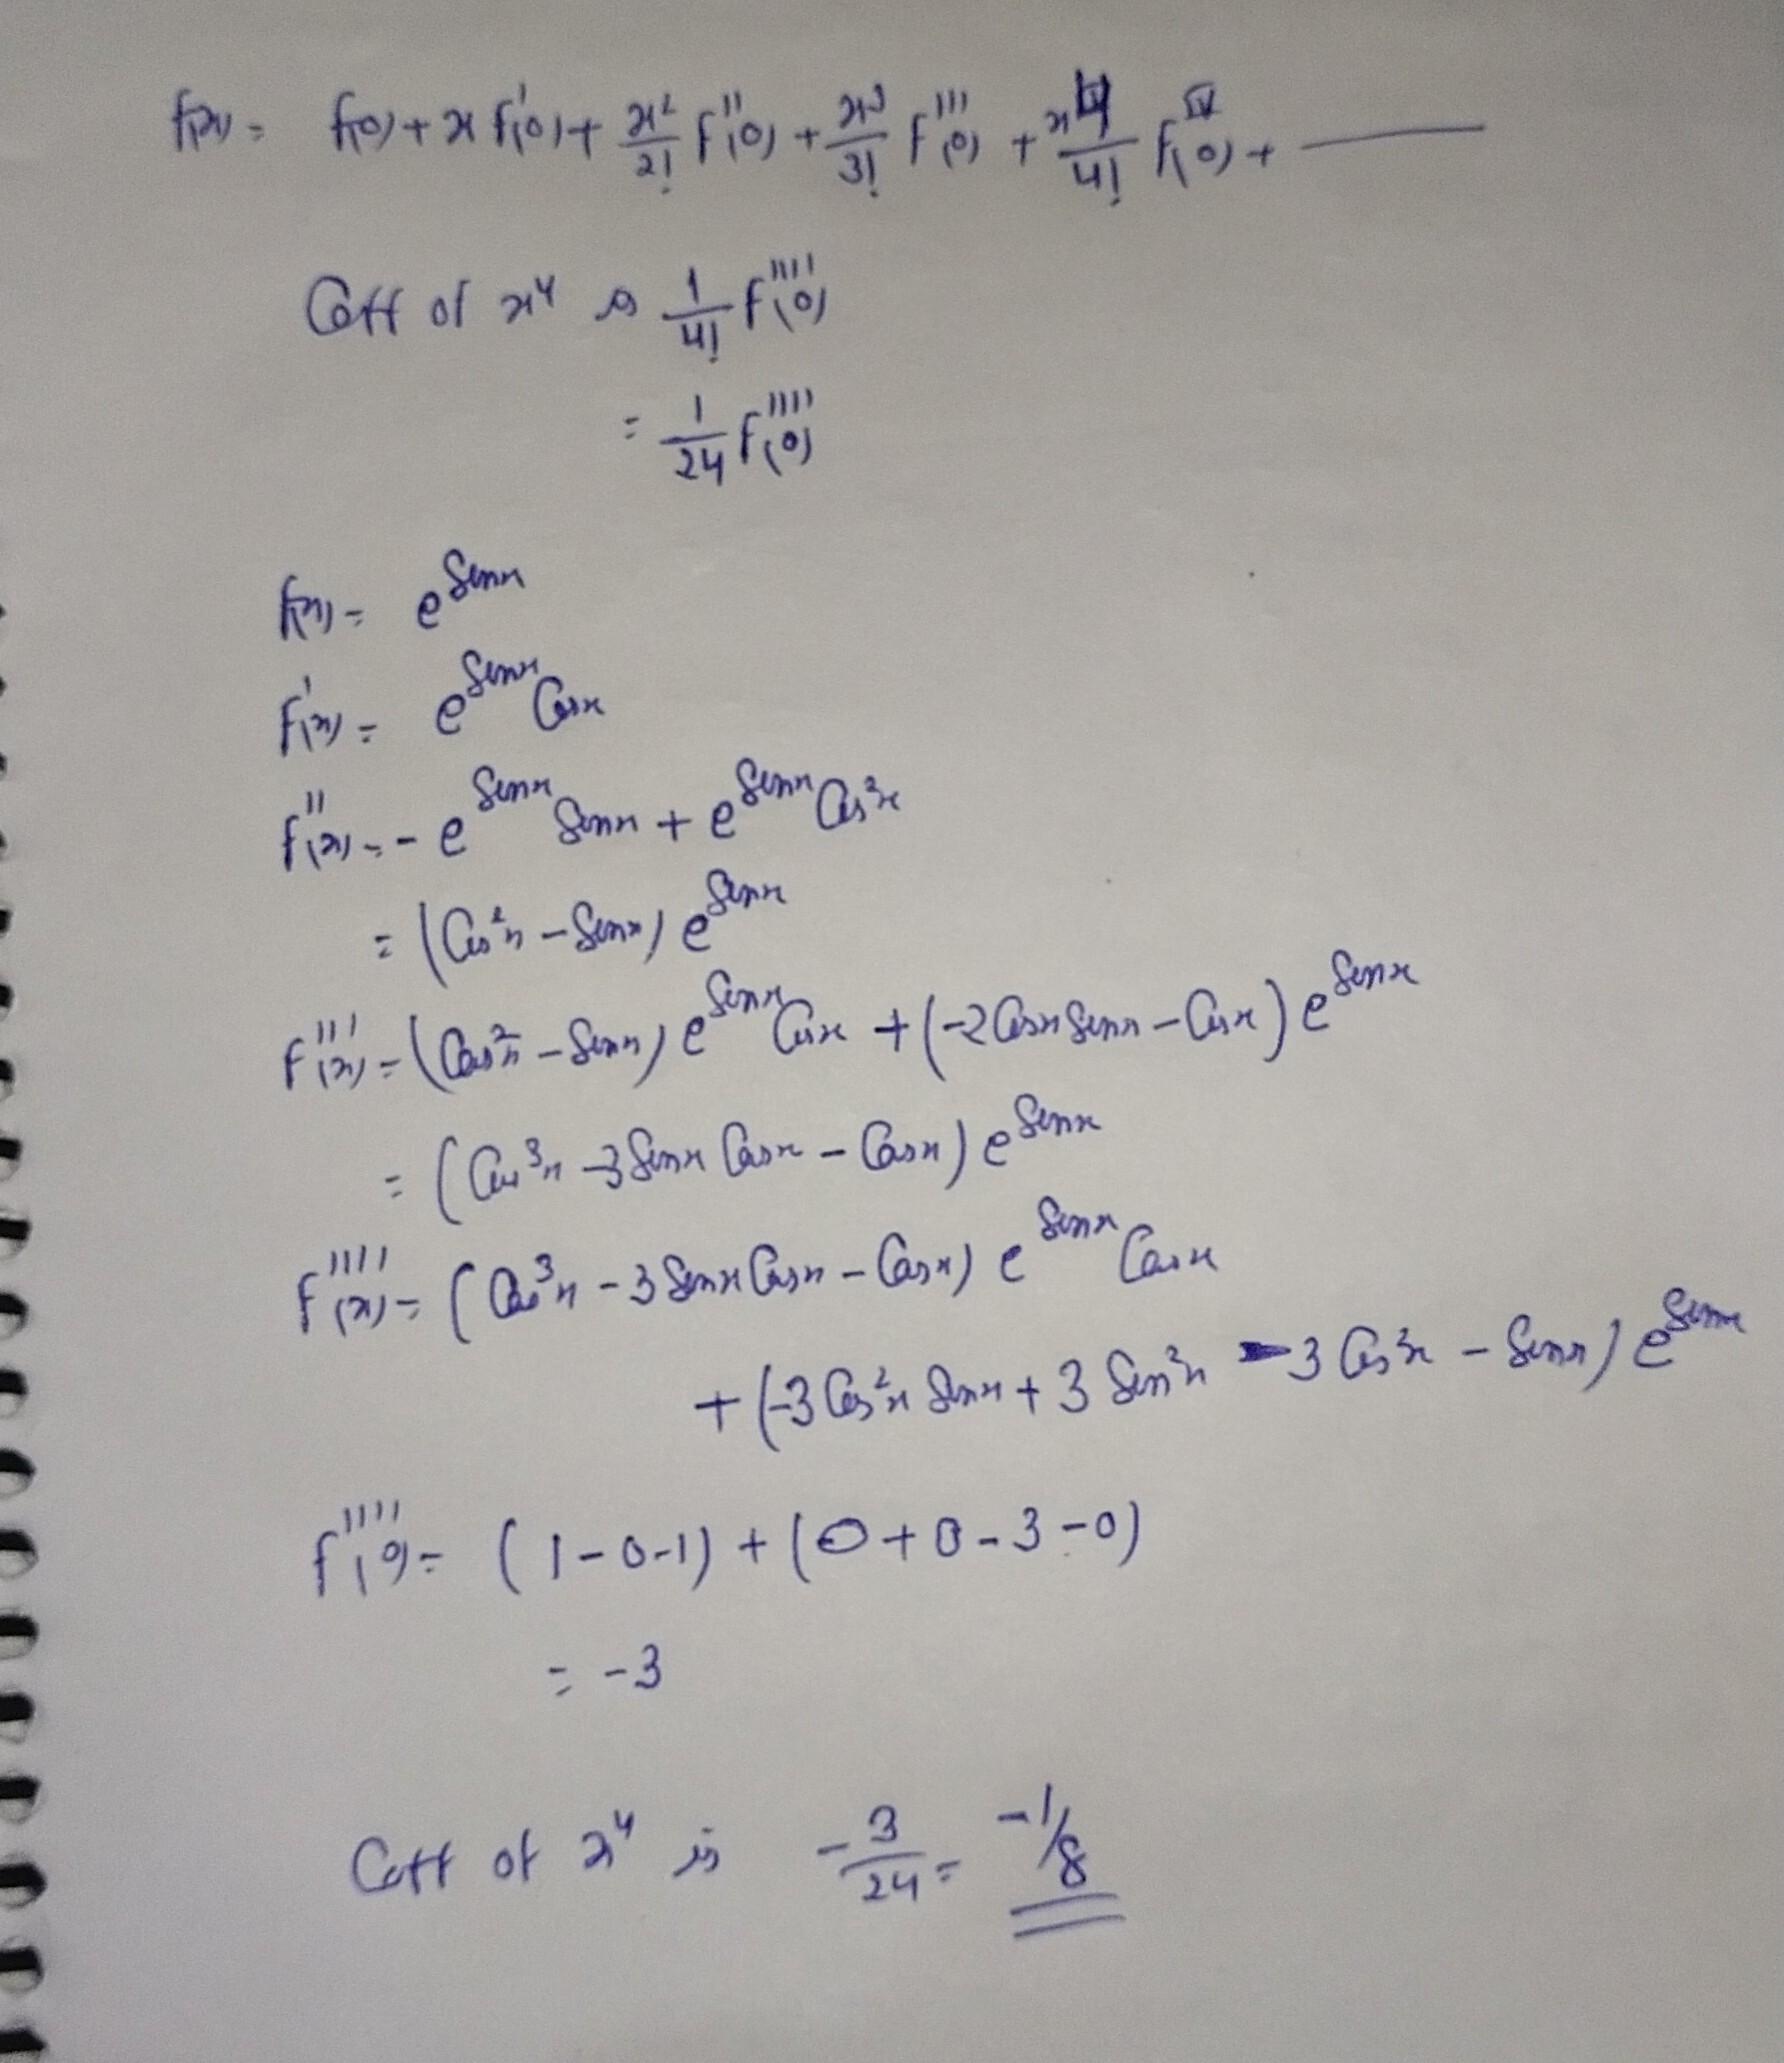 f(x) = f(0) + x f'(0) + x²/2! f''(0) + x³/3! f'''(0) + x⁴/4! f^IV(0) + ———
Coff of x⁴ is 1/4! f''''(0)
= 1/24 f''''(0)
f(x) = e^Sinx
f'(x) = e^Sinx Cosx
f''(x) = - e^Sinx Sinx + e^Sinx Cos²x
= (Cos²x - Sinx) e^Sinx
f'''(x) = (Cos²x - Sinx) e^Sinx Cosx + (-2 Cosx Sinx - Cosx) e^Sinx
= (Cos³x - 3 Sinx Cosx - Cosx) e^Sinx
f''''(x) = (Cos³x - 3 Sinx Cosx - Cosx) e^Sinx Cosx
+ (-3 Cos²x Sinx + 3 Sin²x - 3 Cos²x - Sinx) e^Sinx
f''''(0) = (1-0-1) + (0+0-3-0)
= -3
Coff of x⁴ is -3/24 = -1/8